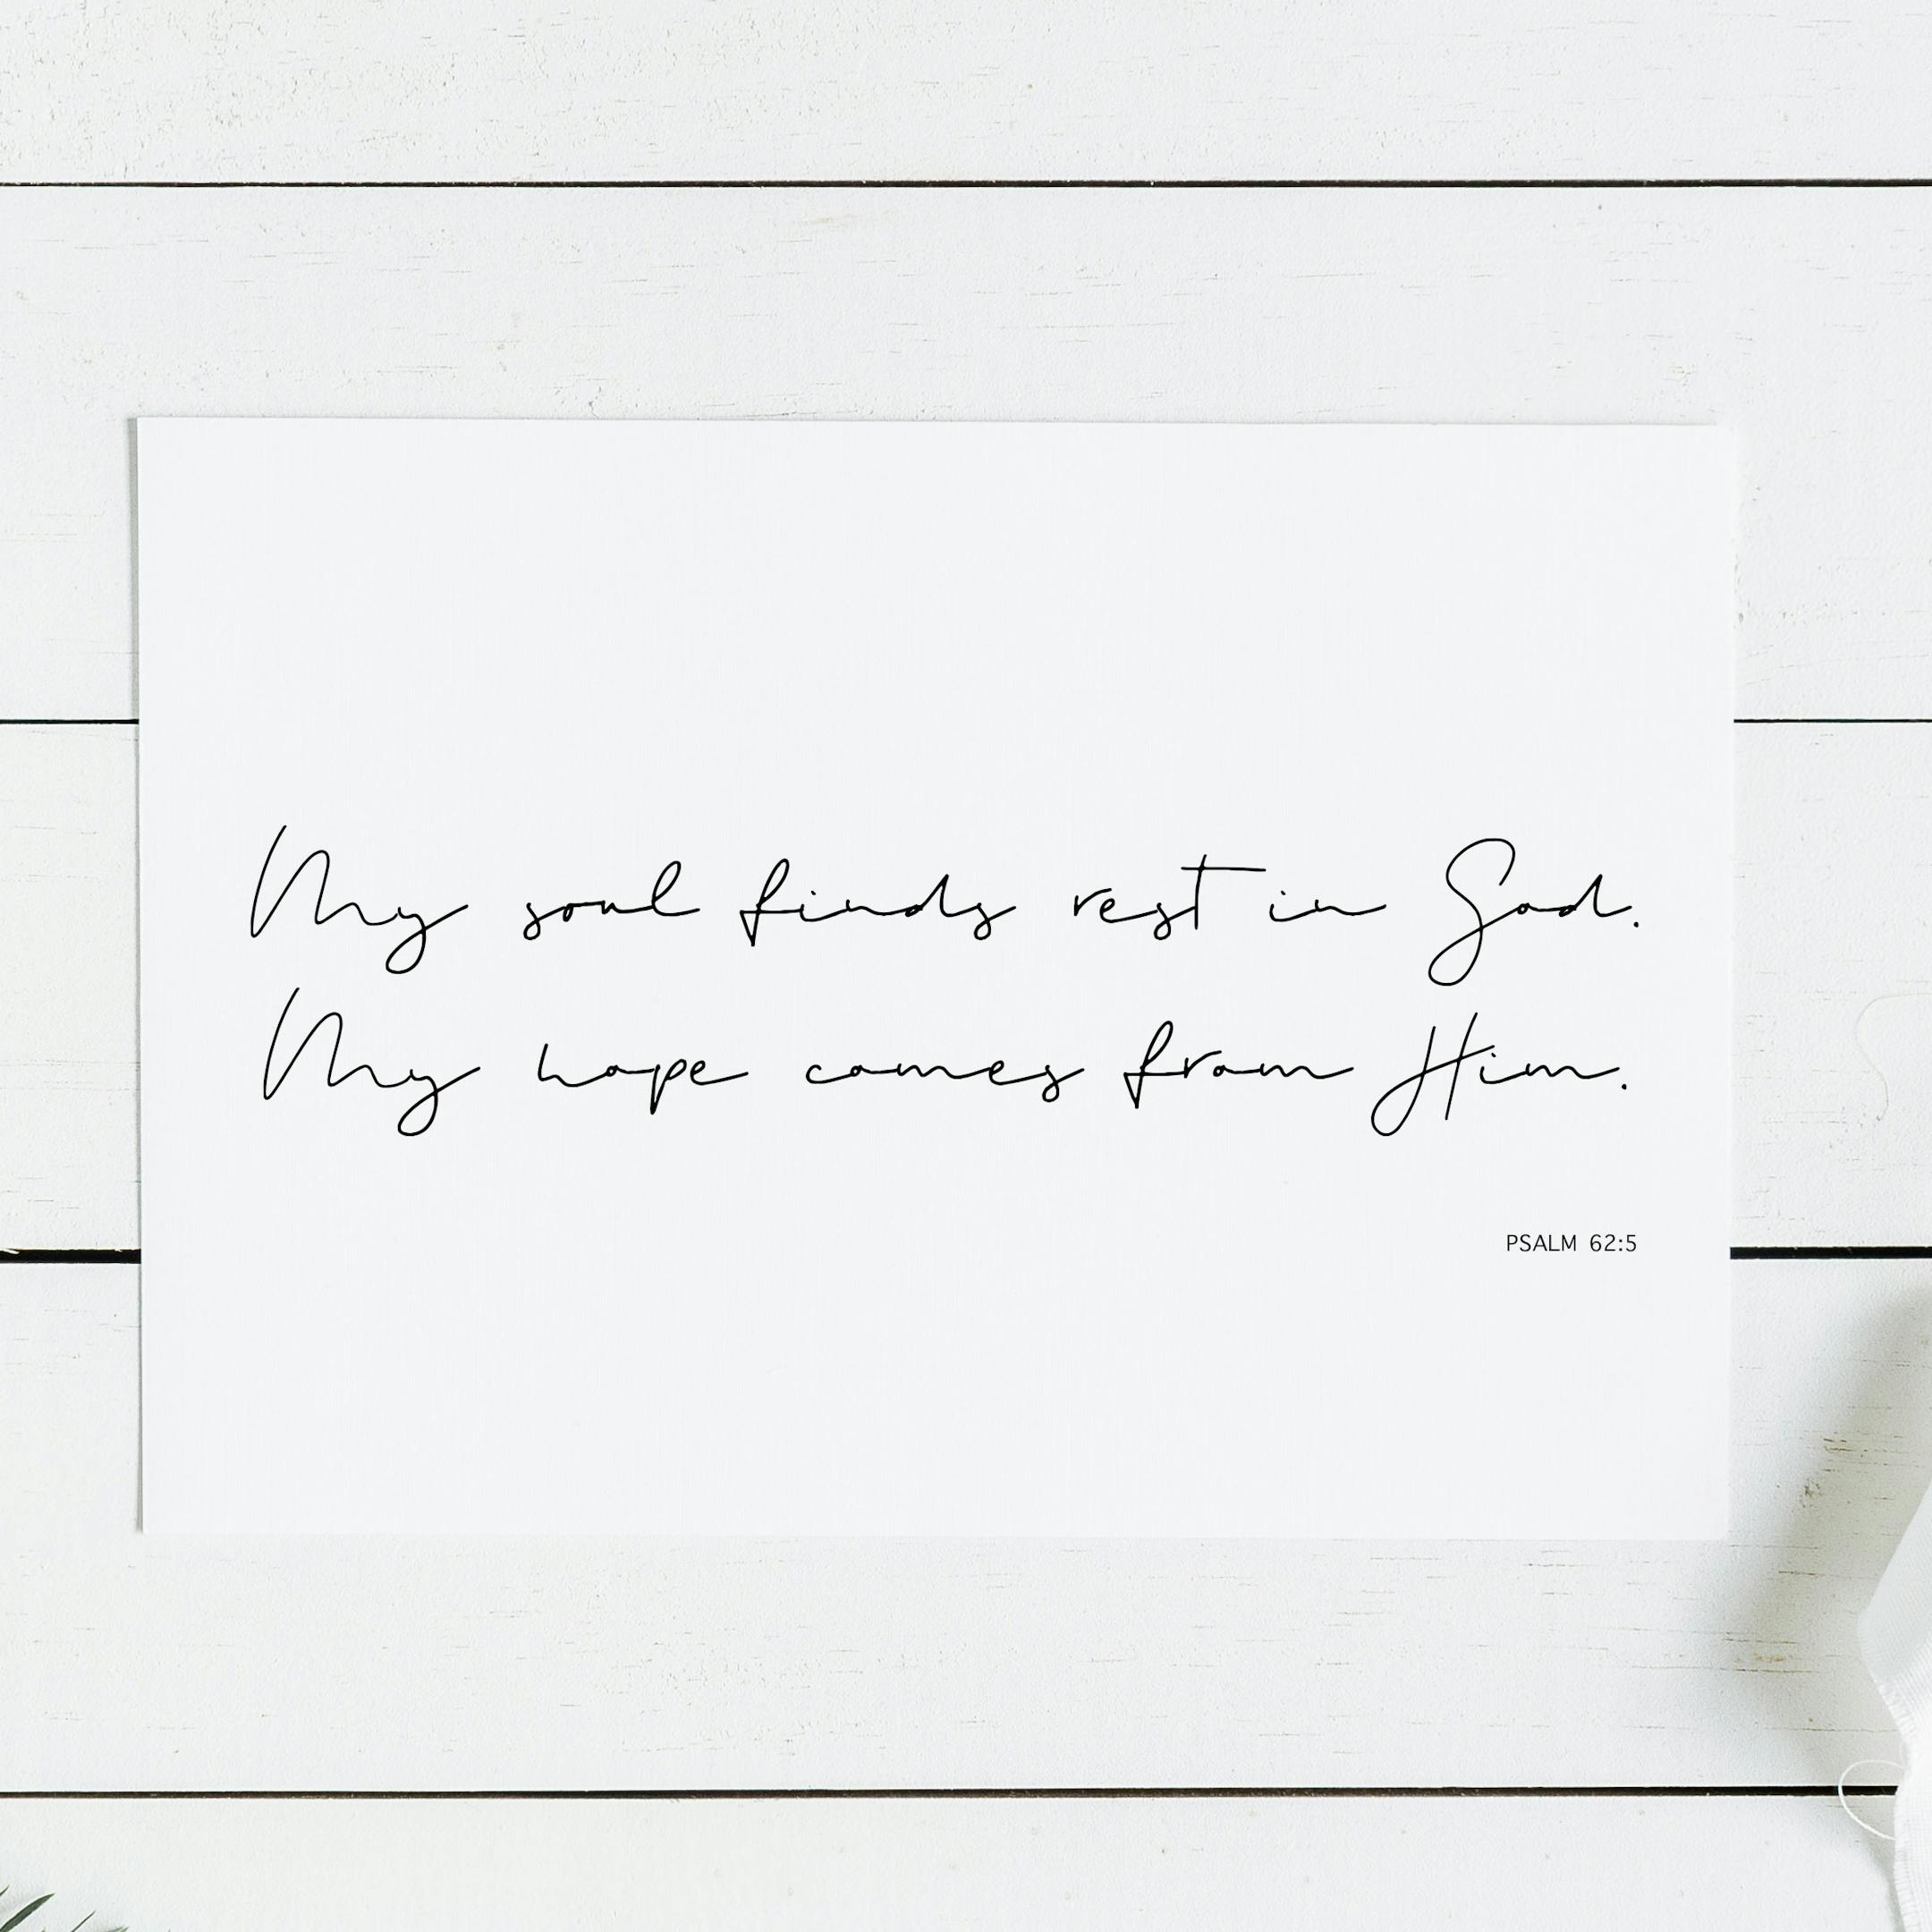 My soul finds rest in God.
My hope comes from Him.
PSALM 62:5